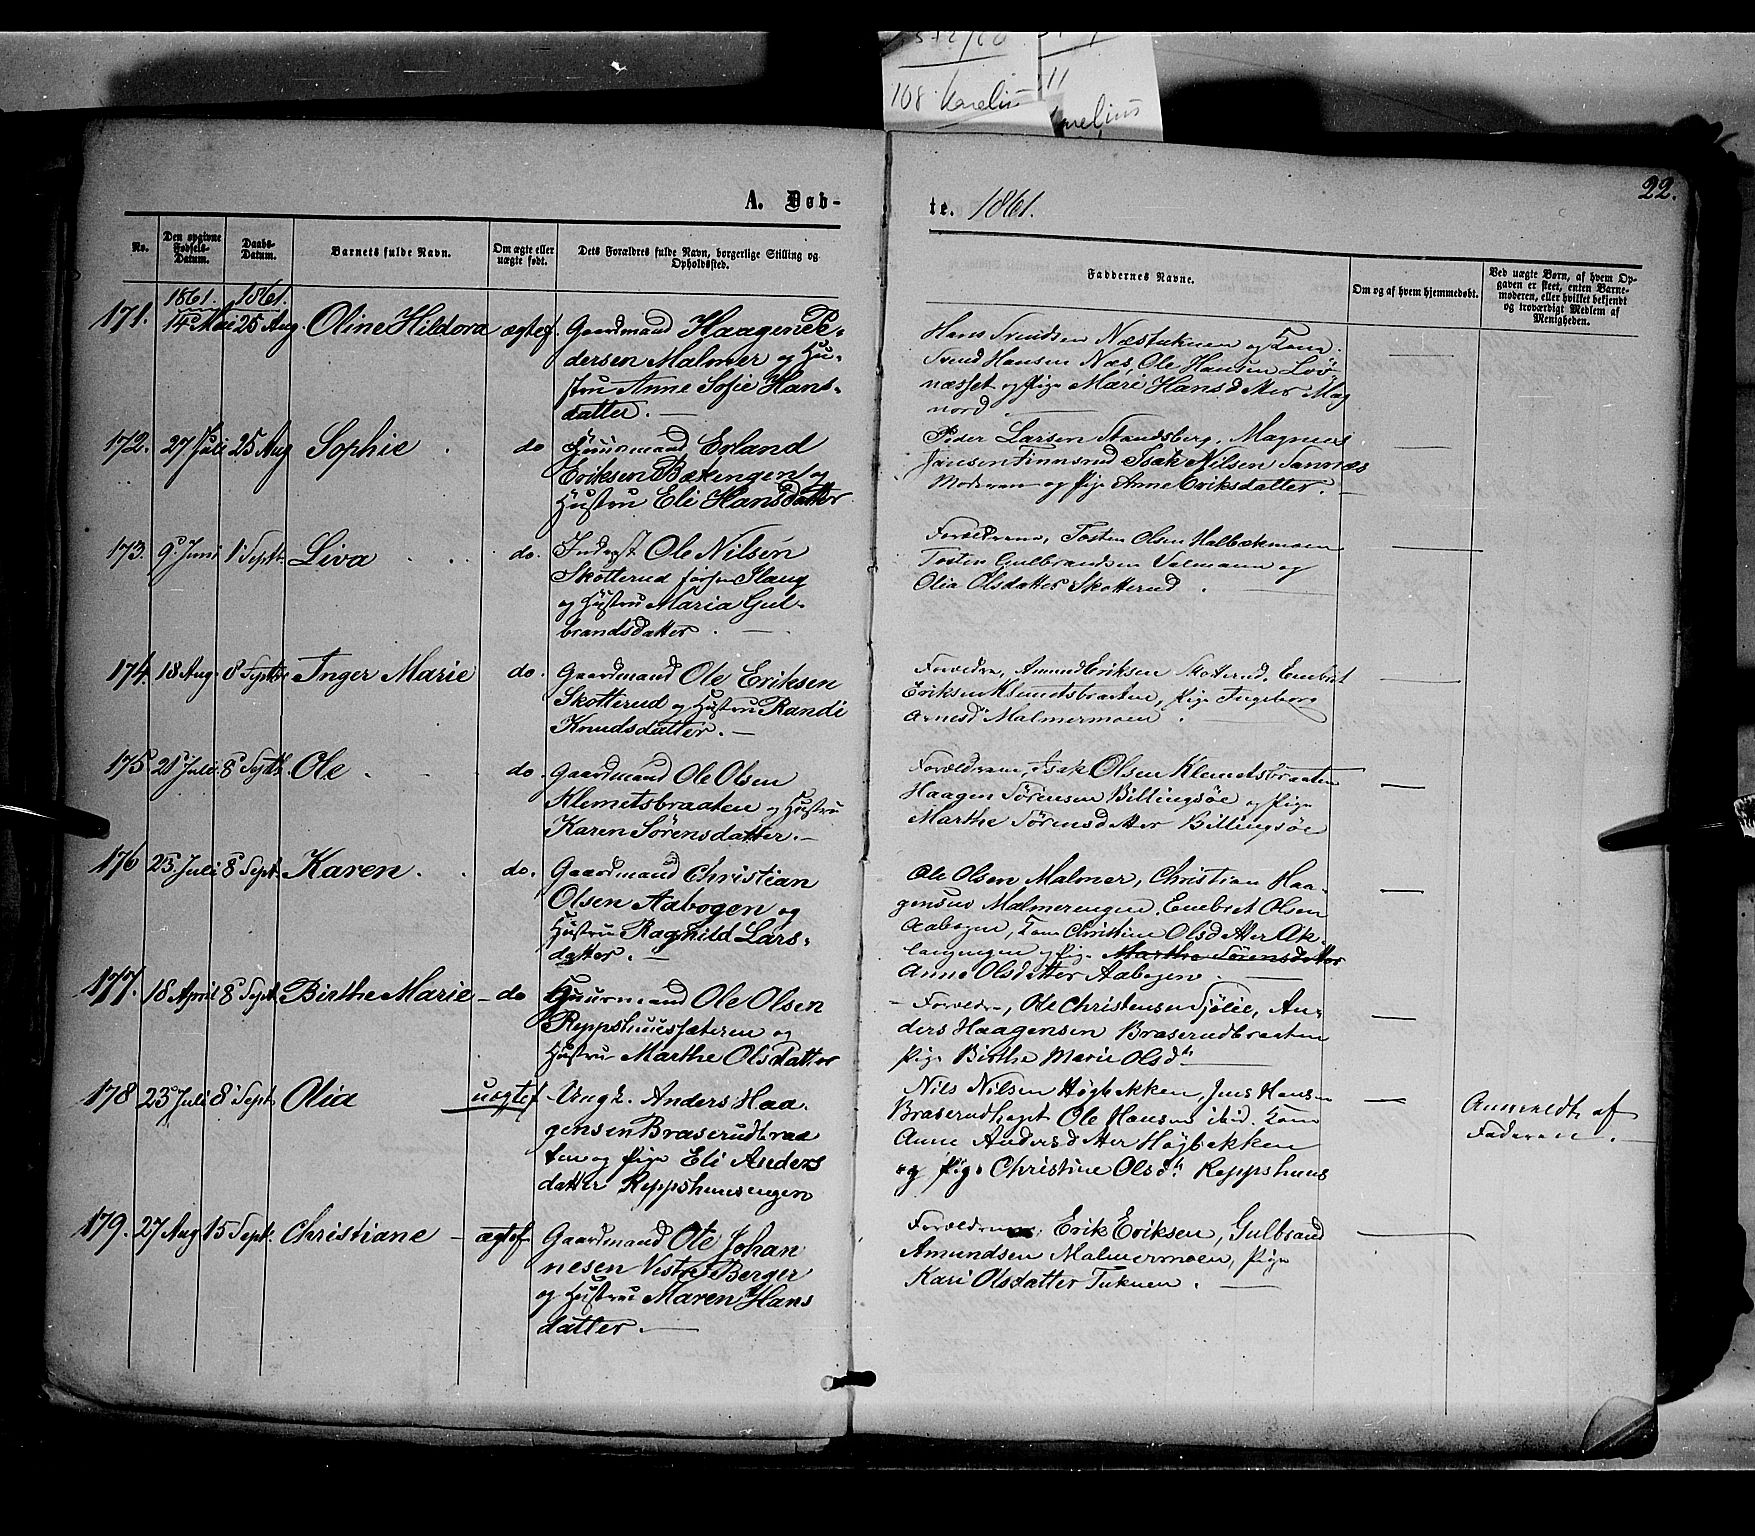 108 Karelius
11
A. Døb-
te. 1861.
22.
No.
Den opgivne Fødsels-Datum.
Daabs-Datum.
Barnets fulde Navn.
Om ægte eller uægte født.
Dets Forældres fulde Navn, borgerlige Stilling og Opholdssted.
Faddernes Navne.
Om og af hvem hjemmedøbt.
Ved uægte Børn, af hvem Opgaven er skeet, enten Barnemoderen, eller hvilket bekjendt og troværdigt Medlem af Menigheden.
1861. 1861.
171. 14 Mai 25 Aug Oline Hildora ægtef. Gaardmand Haagen Pe-
dersen Malmer og Hu-
stru Anne Sofie Hans-
datter. —
Hans Svendsen Næstuknen og Kone
Svend Hansen Næs, Ole Hansen Löv-
næsset og Pige Mari Hansdatter Mag
nord —
172. 27 Juli 25 Aug Sophie do Huusmand Erland
Eriksen Bækengen og
Hustru Eli Hansdatter
Peder Larsen Strandsberg, Magnus
Jansen Finnsrud Isak Nilsen Sannæs
Moderen og Pige Anne Eriksdatter. —
173. 9 Juni 1 Septb. Liva do. Inderst Ole Nilsen
Skotterud
og Hustru Maria Gul-
brandsdatter. —
Forældrene, Tosten Olsen Halbækmoen
Tosten Gulbrandsen Valmann og
Olia Olsdatter Skotterud. —
174. 18 Aug. 8 Septbr Inger Marie do. Gaardmand Ole Eriksen
Skotterud og Hustru Randi
Knudsdatter. —
Forældre, Amund Eriksen Skotterud, Embret
Eriksen Klemetsbraaten, Pige Ingeborg
Arnesd Malmermoen. —
175 21 Juli 8 Septb. Ole do. Gaardmand Ole Olsen
Klemetsbraaten og Hustru
Karen Sörensdatter. —
Forældrene, Isak Olsen Klemetsbraaten
Haagen Sörensen Billingsöe og Pige
Marthe Sörensdatter Billingsöe
176 23 Juli 8 Sept. Karen do. Gaardmand Christian
Olsen Aabogen og
Hustru Ragnild Lars-
datter. —
Ole Olsen Malmer, Christian Haa-
gensen Malmerengen, Embret Olsen
Aabogen, Kone Christine Olsdatter Ak-
og Pige Marthe Sörensdatter
Anne Olsdatter Aabogen. —
177. 18 April 8 Sept. Birthe Marie do Huusmand Ole Olsen
Reppshuussæteren og
Hustru Marthe Olsdatter
Forældre, Ole Christensen Sjölie, An-
ders Haagensen Braserudbraaten
Pige Birthe Marie Olsdtr
178 23 Juli 8 Sept. Olia uægtef. Ungk. Anders Haa-
gensen Braserudbraa
ten og Pige Eli Anders
datter Reppshuusengen
Nils Nilsen Högbækken, Jens Hans-
Braserudhaget Ole Hansen ibid. Kone
Anne Andersdatter Högbækken
og Pige Christine Olsdtr Reppshuus
Anmeldt af
Faderen. —
179. 27 Aug 15 Sept. Christiane ægtef. Gaardmand Ole Johan
nesen Vestre Berger
og Hustru Maren Hans
datter. —
Forældrene, Erik Eriksen, Gulbrand
Amundsen Malmermoen, Pige
Kari Olsdatter Tuknen. —